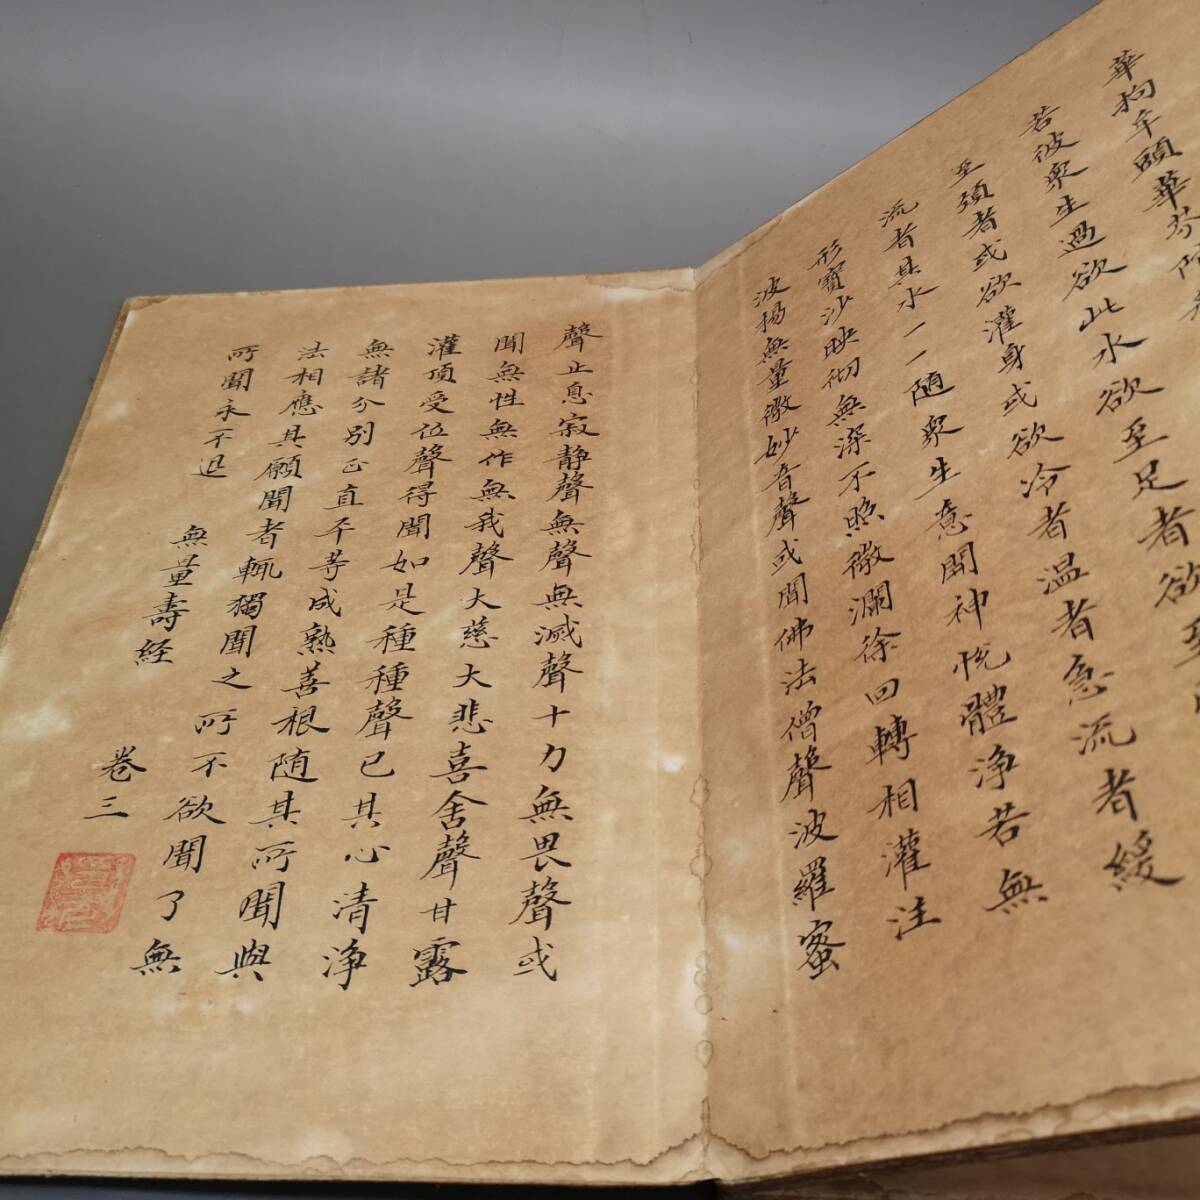 華拘牟頭華芬陀
若彼衆生過欲此水欲至足者欲至
至頸者或欲灌身或欲冷者温者急流者緩
流者其水一一随衆生意開神悦體浄若無
形寳沙映彻無深不照微瀾徐回轉相灌注
波揚無量微妙音聲或聞佛法僧聲波羅蜜
聲止息寂静聲無聲無滅聲十力無畏聲或
聞無性無作無我聲大慈大悲喜舍聲甘露
灌頂受位聲得聞如是種種聲已其心清浄
無諸分别正直平等成熟善根随其所聞與
法相應其願聞者輒獨聞之所不欲聞了無
所聞永不退
無量壽経
卷三